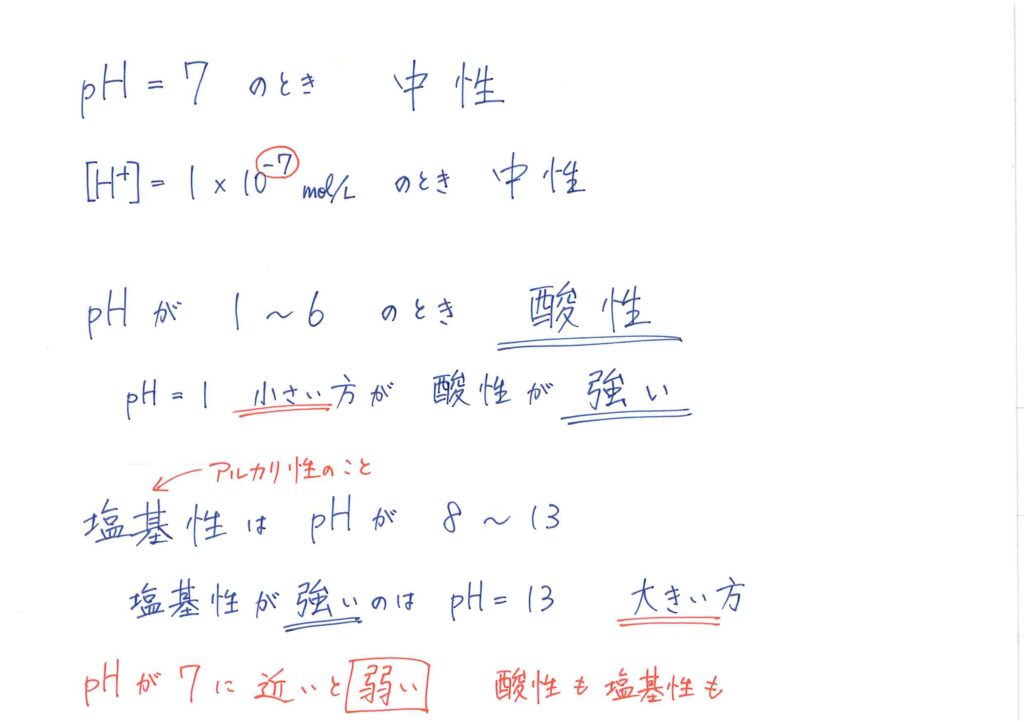 pH = 7 のとき 中性
[H⁺] = 1 × 10⁻⁷ mol/L のとき 中性
pH が 1 ~ 6 のとき 酸性
pH = 1 小さい方が 酸性が 強い
アルカリ性のこと
塩基性は pH が 8 ~ 13
塩基性が 強いのは pH = 13 大きい方
pH が 7 に 近いと 弱い 酸性も 塩基性も